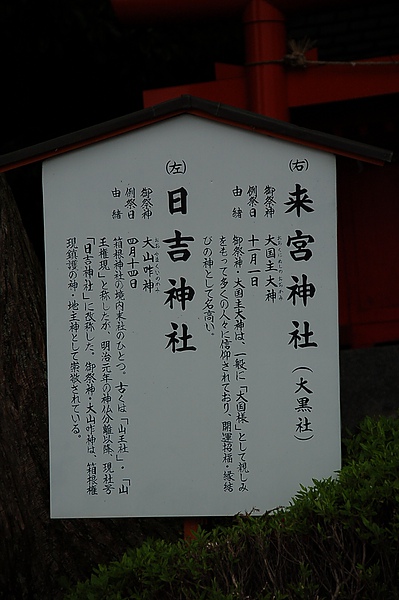 (右)
来宮神社(大黒社)
御祭神 大国主大神
例祭日 十一月一日
由緒 御祭神・大国主大神は、一般に「大国様」として親しみ
をもって多くの人々に信仰されており、開運招福・縁結
びの神として名高い。
(左)
日吉神社
御祭神 大山咋神
例祭日 四月十四日
由緒 箱根神社の境内末社のひとつ。古くは「山王社」・「山
王権現」と称したが、明治元年の神仏分離以降、現社号
「日吉神社」に改称した。御祭神・大山咋神は、箱根権
現鎮護の神・地主神として崇敬されている。